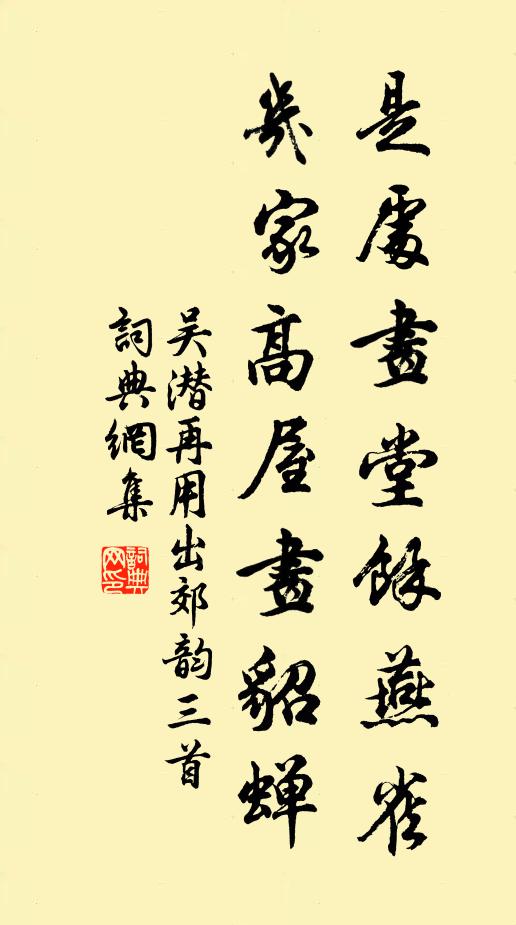 是處畫堂餘燕雀
幾家高屋畫貂蟬
吴潜再用出郊韵三首
詞典網集
詞典網印